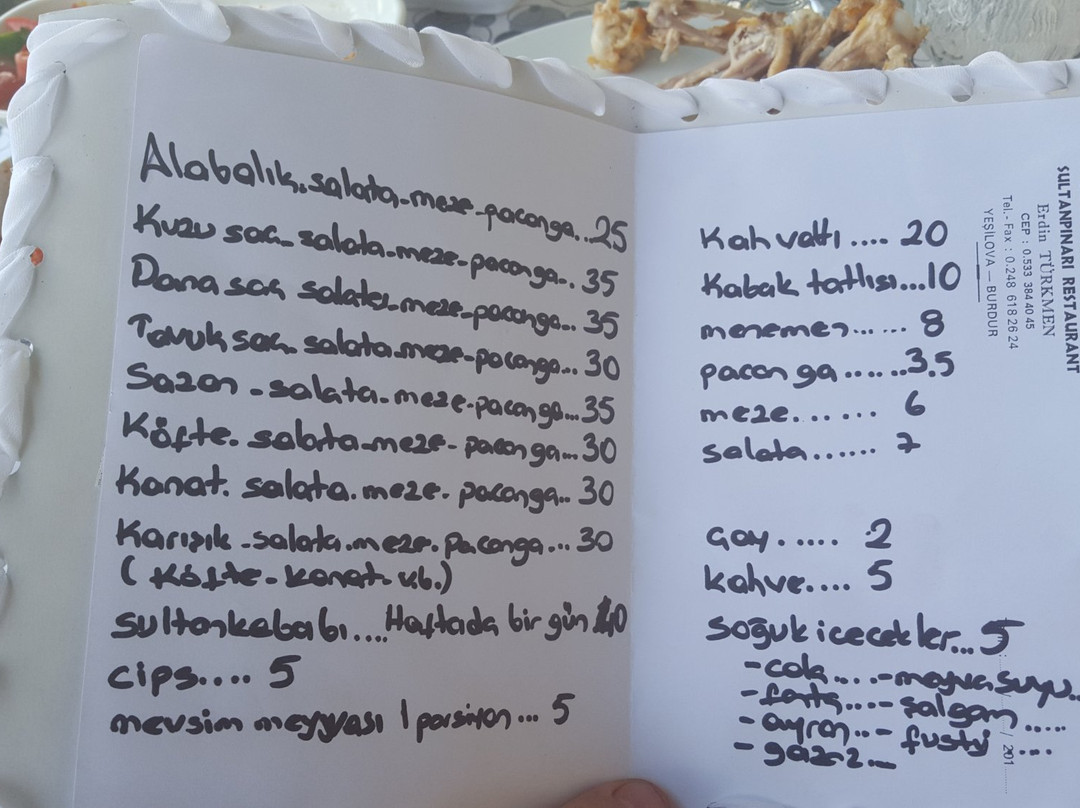 Alabalık. salata-meze-pacanga..25
Kuzu sac-salata-meze-pacanga.. 35
Dana sac salata-meze-pacanga... 35
Tavuk sac salata-meze-pacanga... 30
Sazan - salata-meze-pacanga...35
Köfte. salata-meze-pacanga... 30
Kanat. salata.meze. pacanga.. 30
Karışık -salata.meze.pacanga... 30
(Köfte-kanat v.b.)
sultankebabı....Haftada bir gün 40
cips.... 5
mevsim meyvası 1 porsiyon... 5
Kahvaltı .... 20
Kabak tatlısı...10
menemen...... 8
pacanga.......3.5
meze...... 6
salata...... 7
çay...... 2
kahve.... 5
Soğuk icecekler... 5
-cola....-meyva suyu..
-fanta....-şalgam .....
-ayran..- fusty ....
-gazoz...
SULTANPINARI RESTAURANT
Erdin TÜRKMEN
CEP : 0.533 384 40 45
Tel.- Fax : 0.248 618 26 24
YEŞİLOVA – BURDUR
/ 201